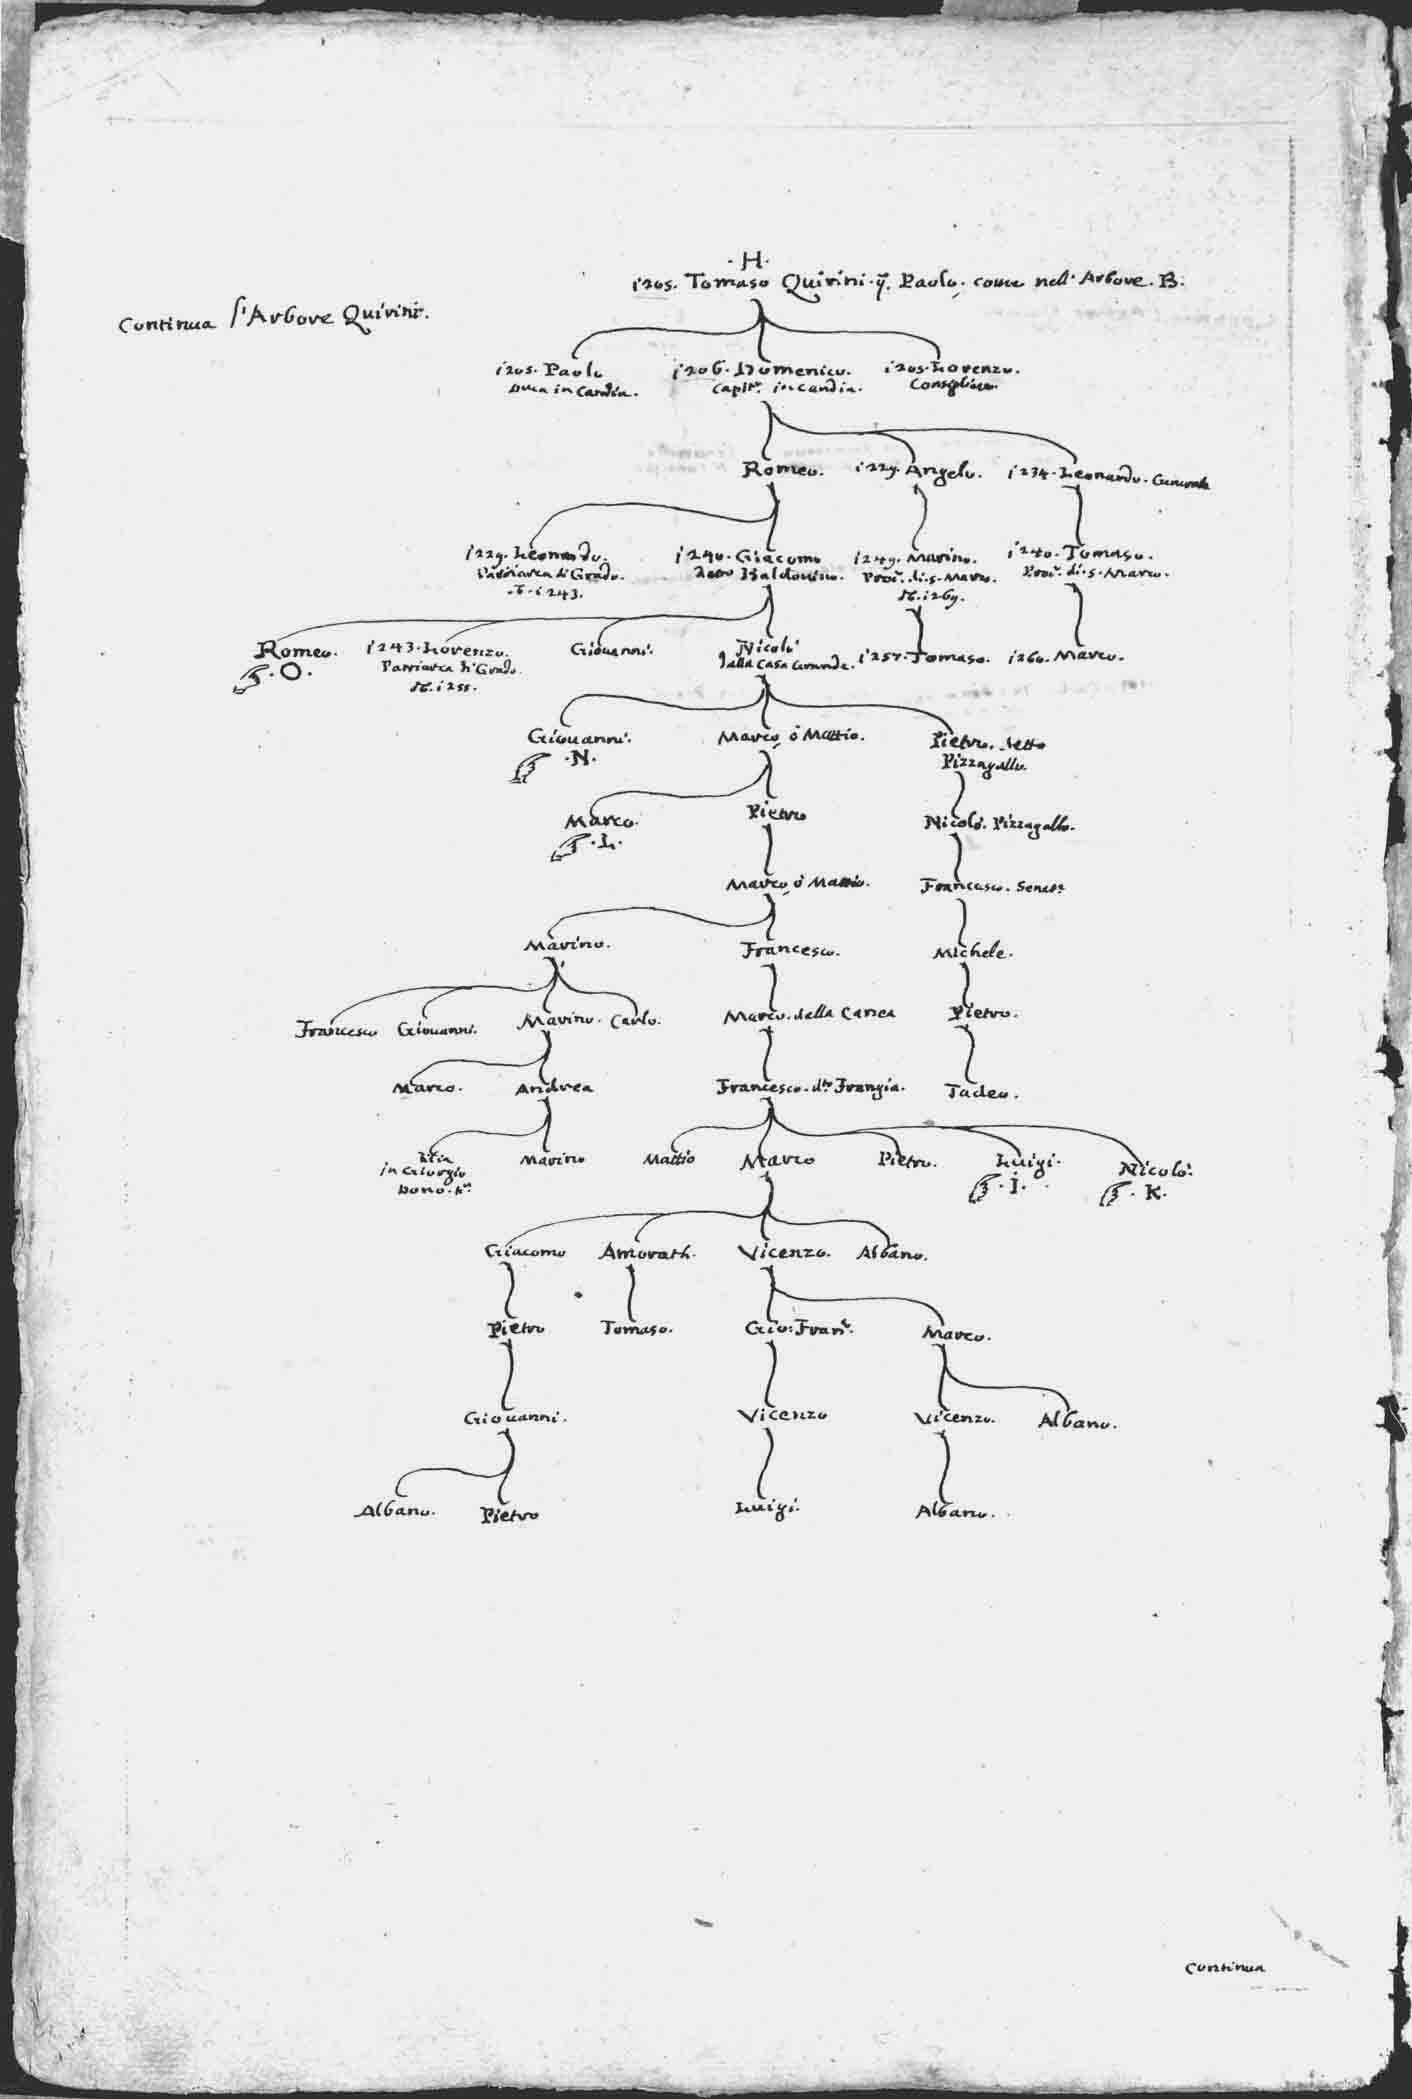 .H.
1205. Tomaso Quirini. q. Paolo, come nell' Arbore. B.
Continua l'Arbore Quirini.
1205. Paolo 1206. Domenico. 1205. Lorenzo.
Duca in Candia. Capit.º in Candia. Consigliere
Romeo. 1229. Angelo. 1234. Leonardo. Generale
1229. Leonardo. 1240. Giacomo 1249. Marino. 1240. Tomaso.
Patriarca di Grado. detto Baldovino. Proc.r di. S. Marco. Proc.r di. S. Marco.
M. 1243. M. 1269.
Romeo. 1243. Lorenzo. Giovanni. Nicolò 1257. Tomaso. 1260. Marco.
.O. Patriarca di Grado. dalla Casa Grande.
M. 1255.
Giovanni. Marco, ò Mattio. Pietro. detto
.N. Pizzagallo.
Marco. Pietro Nicolò. Pizzagallo.
.L.
Marco, ò Mattio. Francesco. Senat.r
Marino. Francesco. Michele.
Francesco Giovanni. Marino. Carlo. Marco. dalla Carica Pietro.
Marco. Andrea Francesco. d.to Frangia. Tadeo.
in Giorgio Marino Mattio Marco Pietro. Luigi. Nicolò.
Dono. .I. .K.
Giacomo Amorath. Vicenzo. Albano.
Pietro Tomaso. Gio: Fran.co Marco.
Giovanni. Vicenzo Vicenzo. Albano.
Albano. Pietro Luigi. Albano.
Continua